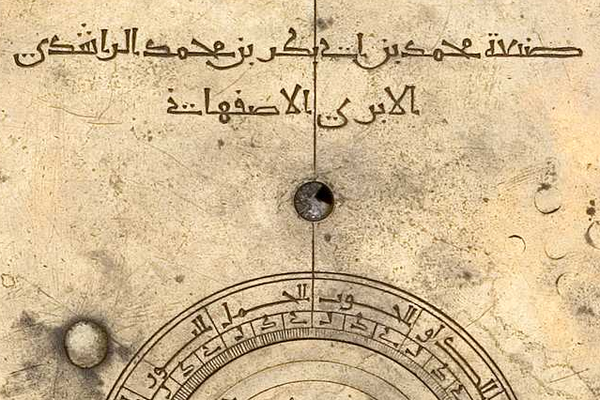 صنعة محمد بن ابي بكر بن محمد الراشدي
الابري الاصفهاني
الثور الحمل الحوت الدلو